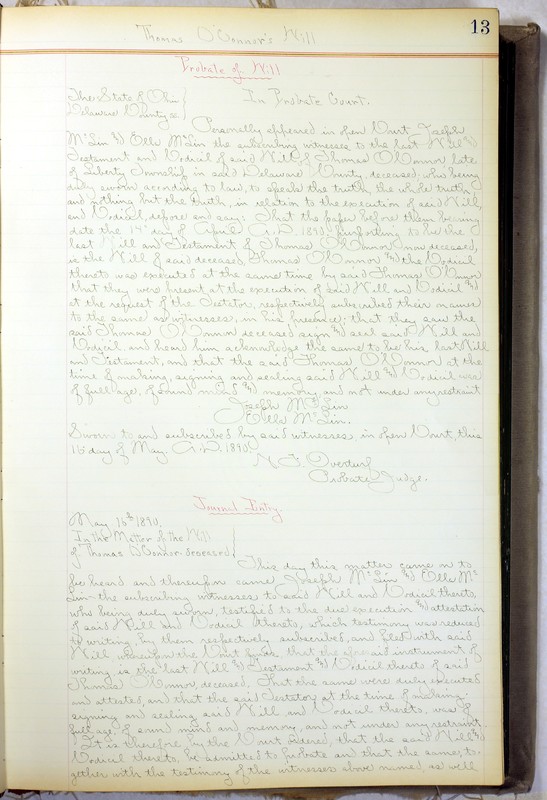 13
Thomas O'Connor's Will
Probate of Will
The State of Ohio
Delaware County ss
In Probate Court.
Personally appeared in open Court, Joseph
McLin & Ella McLin the subscribing witnesses to the last Will &
Testament and Codicil of said Will of Thomas O'Connor late
of Liberty Township in said Delaware County, deceased, who being
duly sworn according to law, to speak the truth, the whole truth
and nothing but the truth, in relation to the execution of said Will,
and Codicil, depose and say: That the paper before them bearing
date the 14" day of April A.D. 1890, purporting to be the
last Will and Testament of Thomas O'Connor now deceased,
is the Will of said deceased Thomas O'Connor & the Codicil
thereto was executed at the same time by said Thomas O'Connor
that they were present at the execution of said Will and Codicil &
at the request of the Testator, respectively subscribed their names
to the same as witnesses, in his presence; that they saw the
said Thomas O'Connor deceased sign & seal said Will and
Codicil and heard him acknowledge the same to be his last Will
and Testament, and that the said Thomas O'Connor at the
time of making, signing and sealing said Will & Codicil was
of full age, of sound mind & memory, and not under any restraint
Joseph McLin
Ella McLin.
Sworn to and subscribed by said witnesses, in open Court, this
day of May. A.D. 1890.
Overturf
Probate Judge.
Journal Entry.
May 16th 1890.
In the Matter of the Will
of Thomas O'Connor deceased
This day this matter came on to
be heard and thereupon came Joseph McLin & Ella Mc
Lin the subscribing witnesses to said Will and Codicil thereto,
who being duly sworn, testified to the due execution & attestation
of said Will and Codicil thereto, which testimony was reduced
to writing, by them respectively subscribed, and filed with said
Will, whereupon the Court finds that the aforesaid instrument of
writing is the last Will & Testament & Codicil thereto of said
Thomas O'Connor, deceased. That the same were duly executed
and attested, and that the said Testator at the time of making
signing and sealing said Will and Codicil thereto, was of
full age, of sound mind and memory, and not under any restraint.
It is therefore, by the Court ordered, that the said Will &
Codicil thereto, be admitted to probate and that the same, to-
gether with the testimony of the witnesses above named, as well